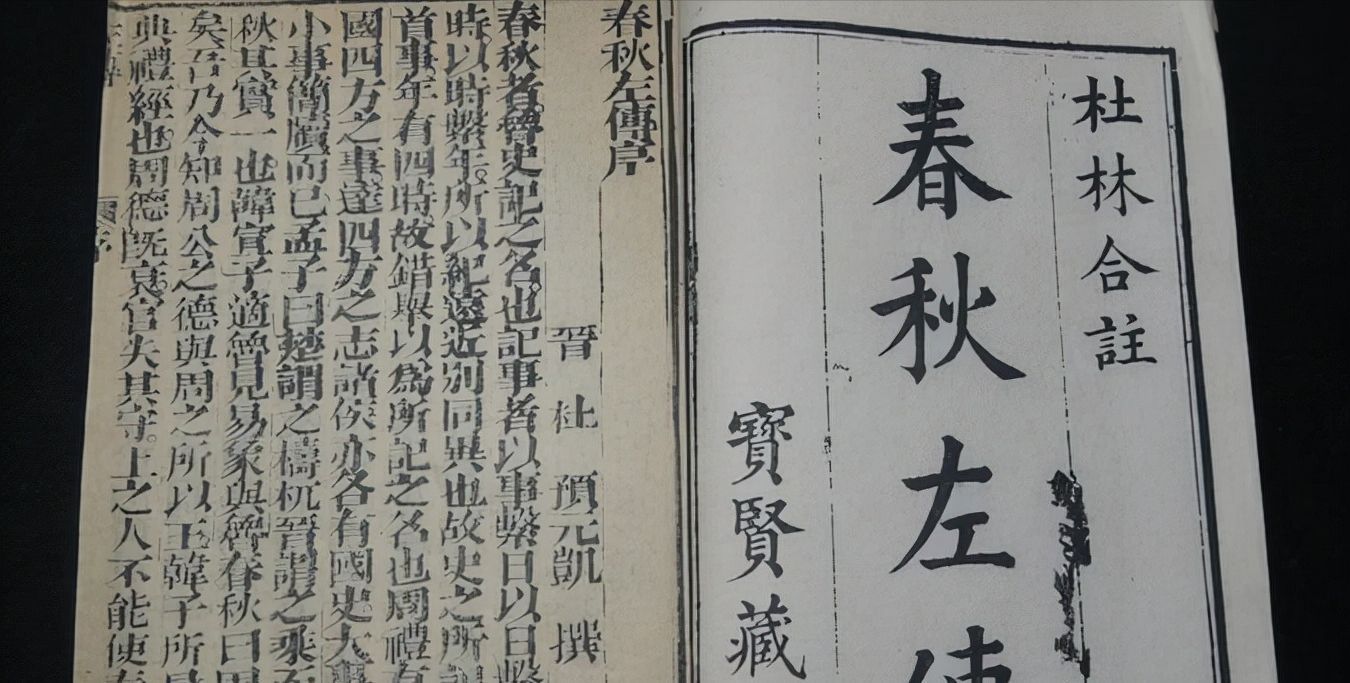 杜林合註
春秋左傳
寶賢藏
春秋左傳序
晉 杜 預元凱 撰
春秋者魯史記之名也記事者以事繫日以日繫
時以時繫年所以紀遠近別同異也故史之所
首事年有四時故錯舉以為所記之名也周禮有
國四方之事達四方之志諸侯亦各有國史大事
小事簡牘而已孟子曰楚謂之檮杌晉謂之乘而
秋其實一也韓宣子適魯見易象與魯春秋曰周
矣吾乃今知周公之德與周之所以王韓子所見
典禮經也周德既衰官失其守上之人不能使春